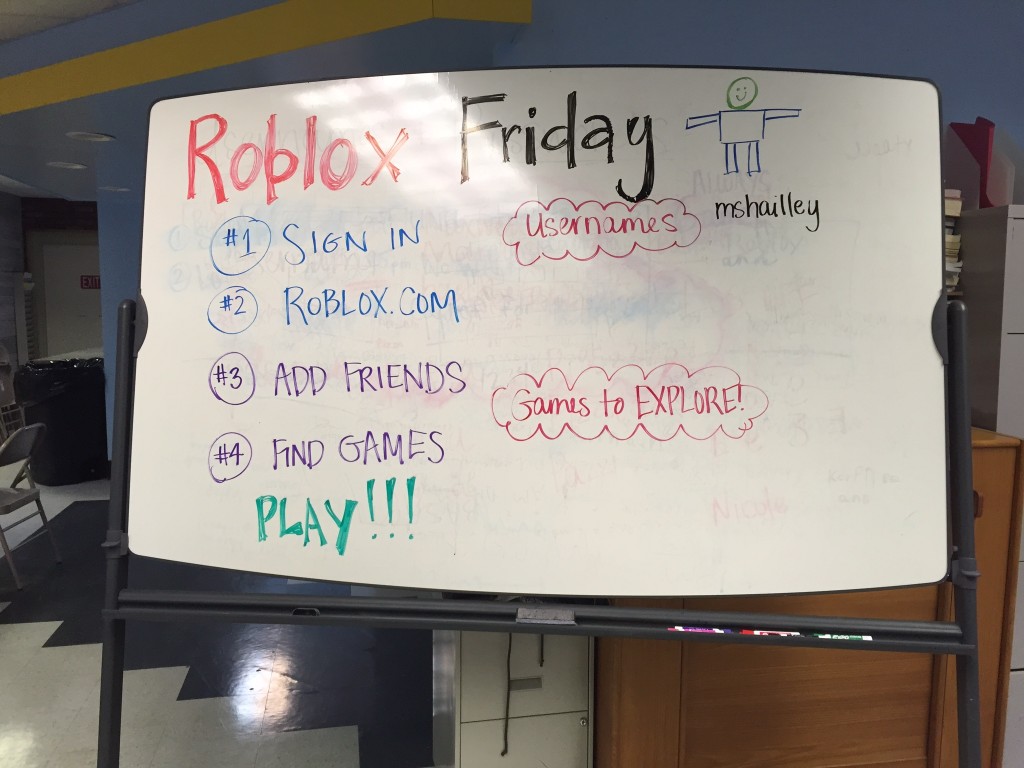 Roblox Friday
mshailley
#1 SIGN IN
Usernames
#2 ROBLOX.COM
#3 ADD FRIENDS
Games to EXPLORE!
#4 FIND GAMES
PLAY!!!
EXIT